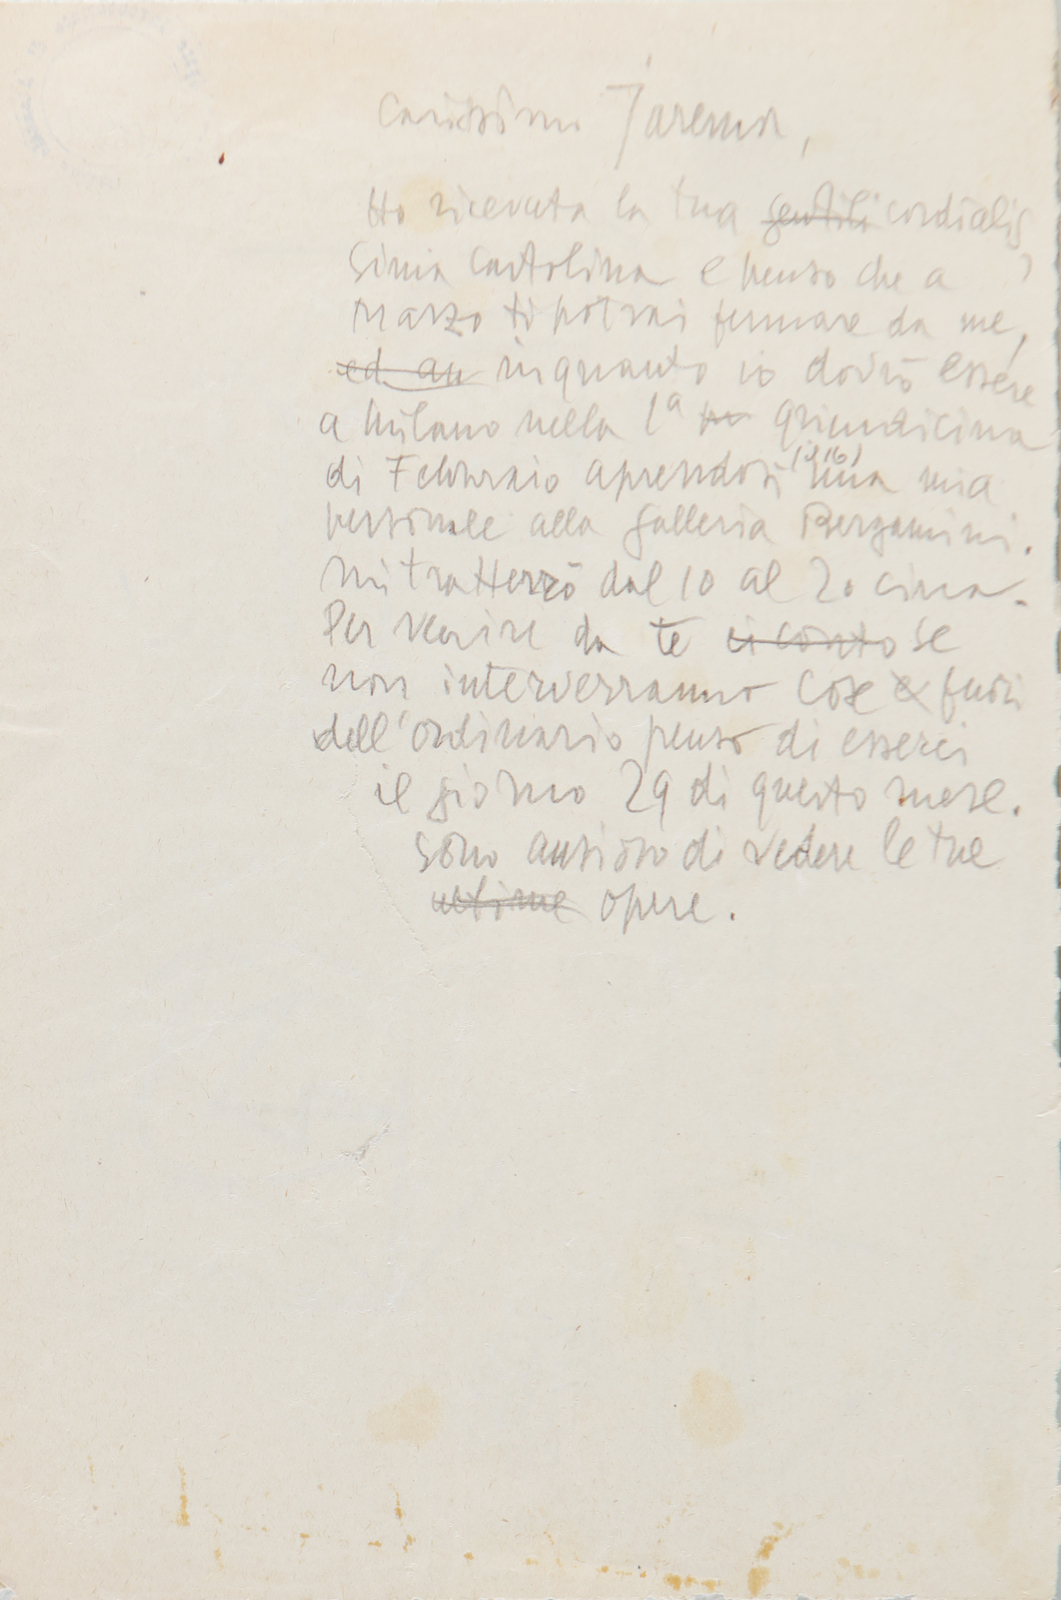 Carissimo Jarema,
Ho ricevuta la tua gentili cordialis
sima cartolina e penso che a
Marzo ti potrai fermare da me,
ed an inquanto io dovrò essere
a Milano nella 1ª quindicina
di Febbraio aprendosi (il 16) una mia
personale alla Galleria Bergamini.
Mi tratterrò dal 10 al 20 circa.
Per venire da te ci conto se
non interverranno cose fuori
dell'ordinario penso di esserci
il giorno 29 di questo mese.
Sono ansioso di vedere le tue
ultime opere.